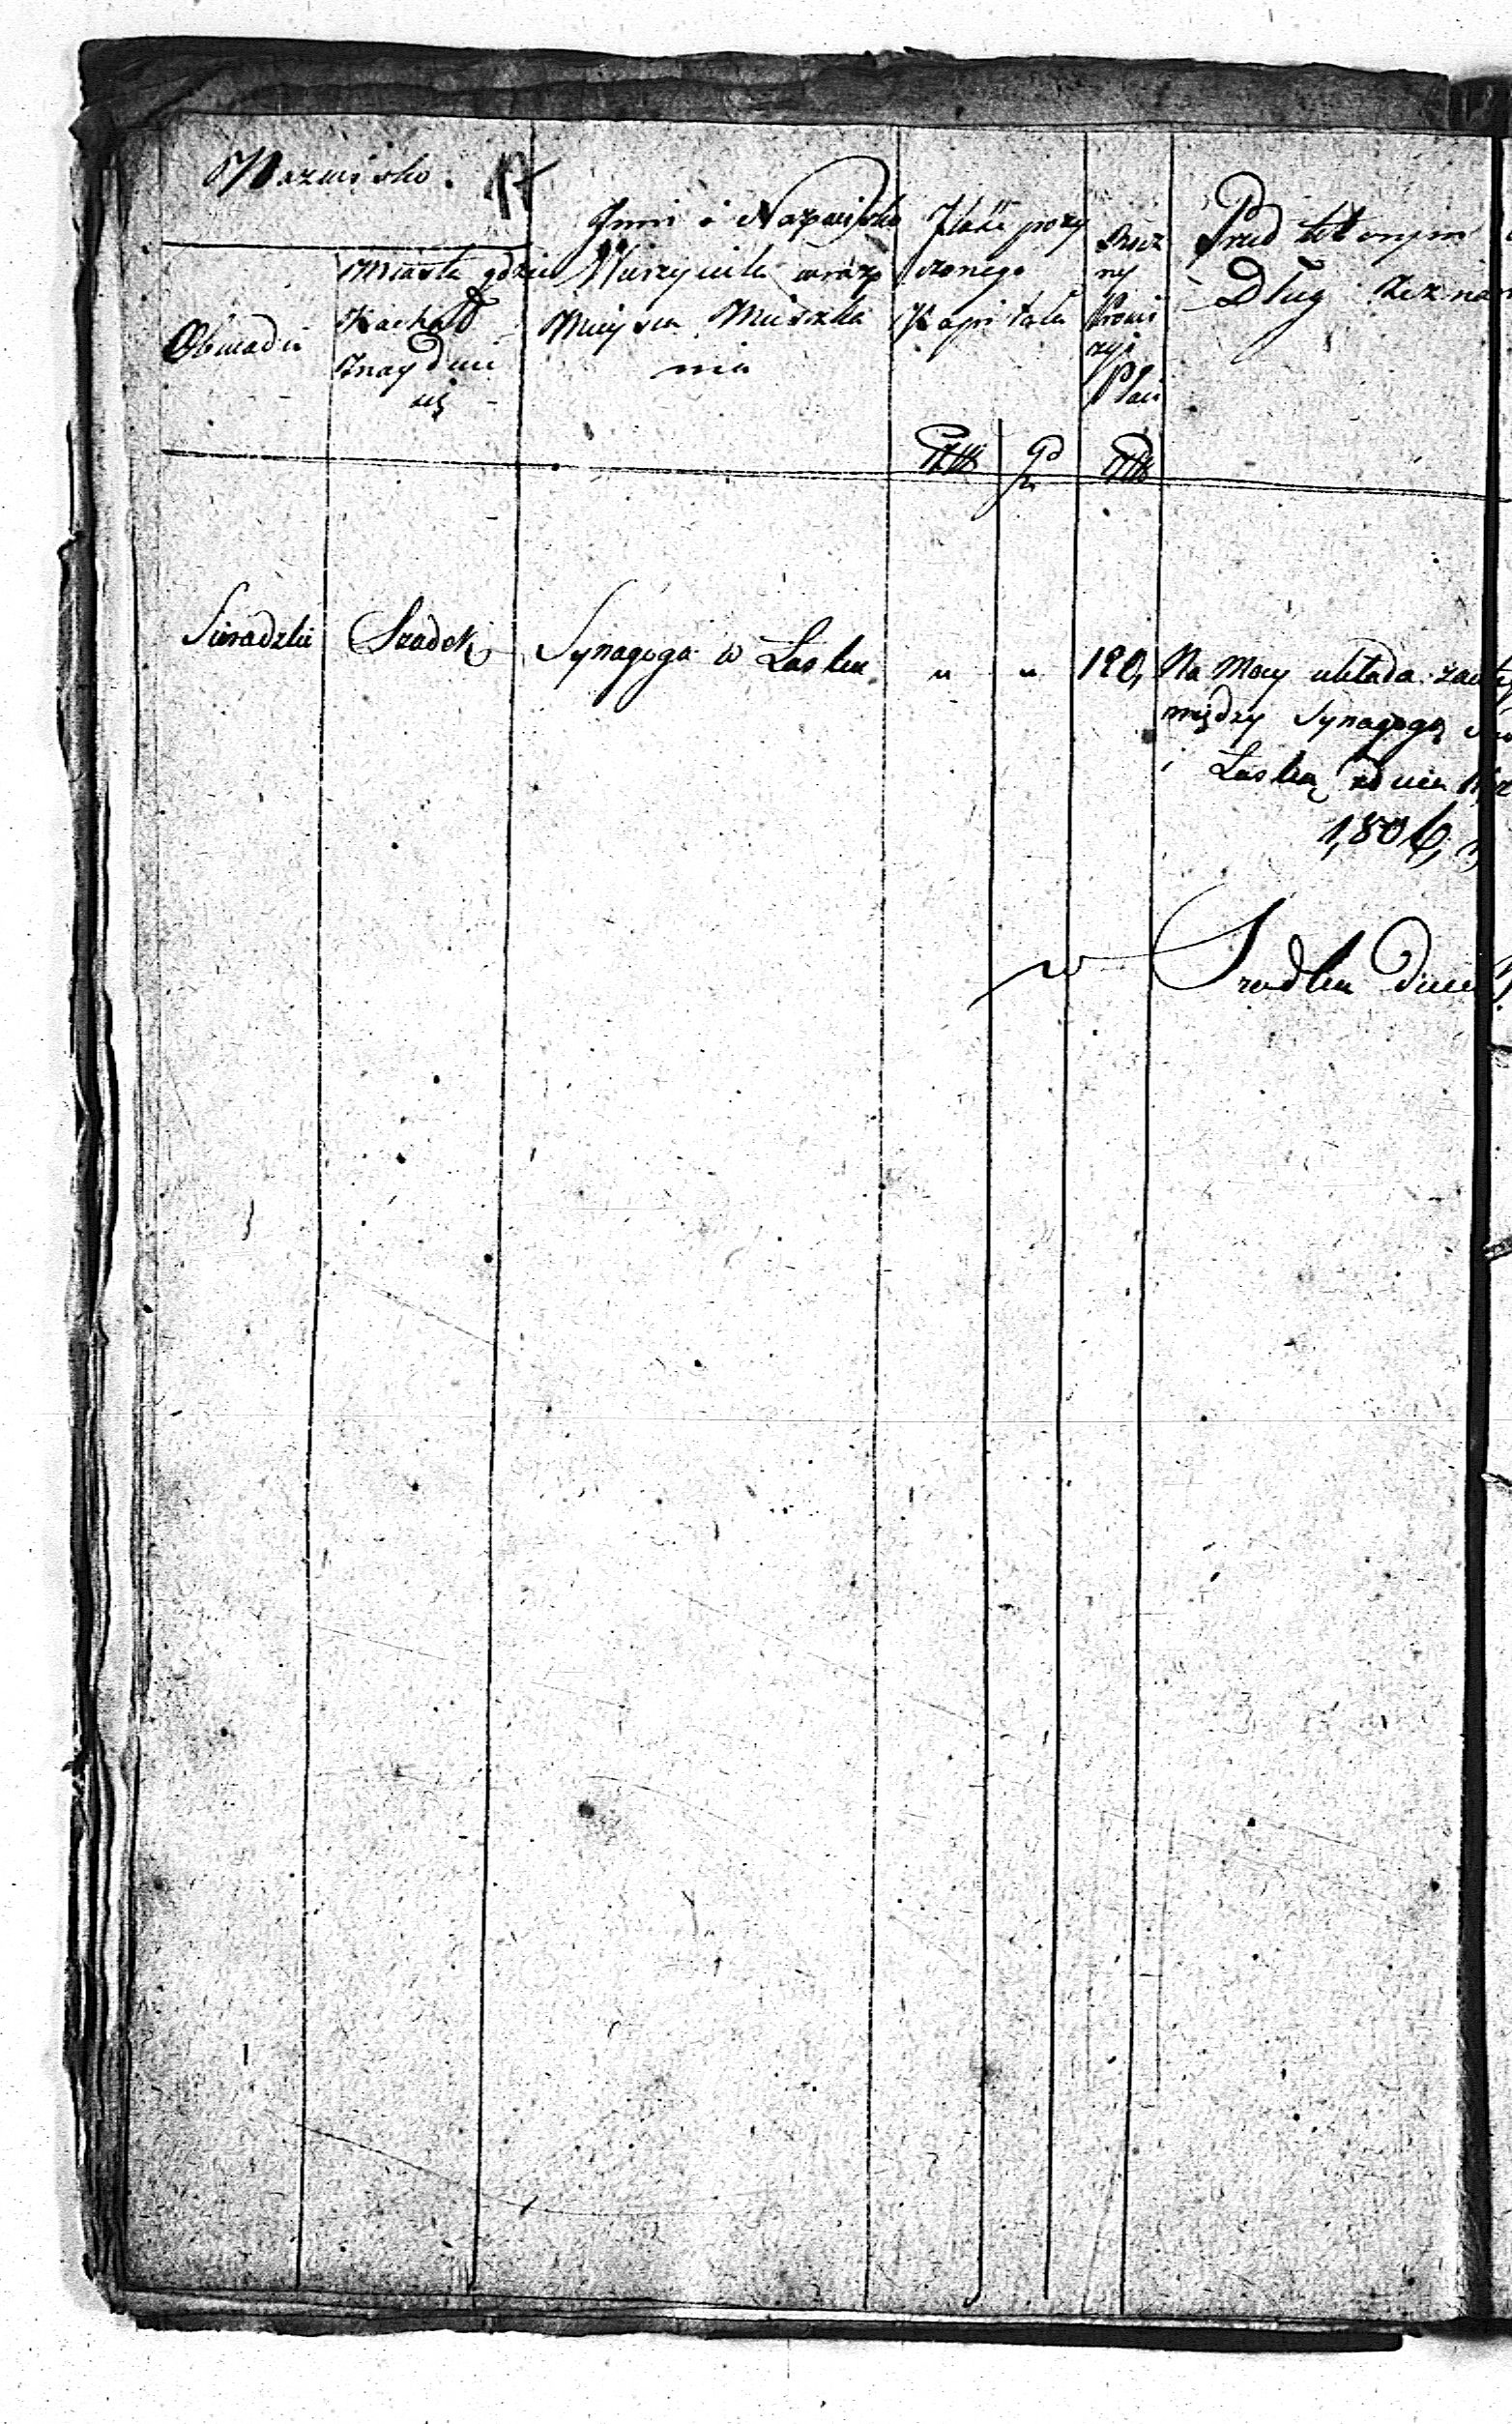 Nazwisko.
Obwodu
Miasta gdzie
Kachał
Znayduie
się
Jmie i Nazwisko
Wierzyciela wraz
Mieysca Mieszka
nia
Ilość pozy
czonego
Kapitału
Rocz
ny
Prowi
zyi
Płaci
Przed którym
Dług Zezna
gr
Sieradzki
Szadek
Synagoga w Lasku
"
"
120,
Na Mocy układu
między Synagogą
i Laską z dnia
1,806,
w Szadku Dnia